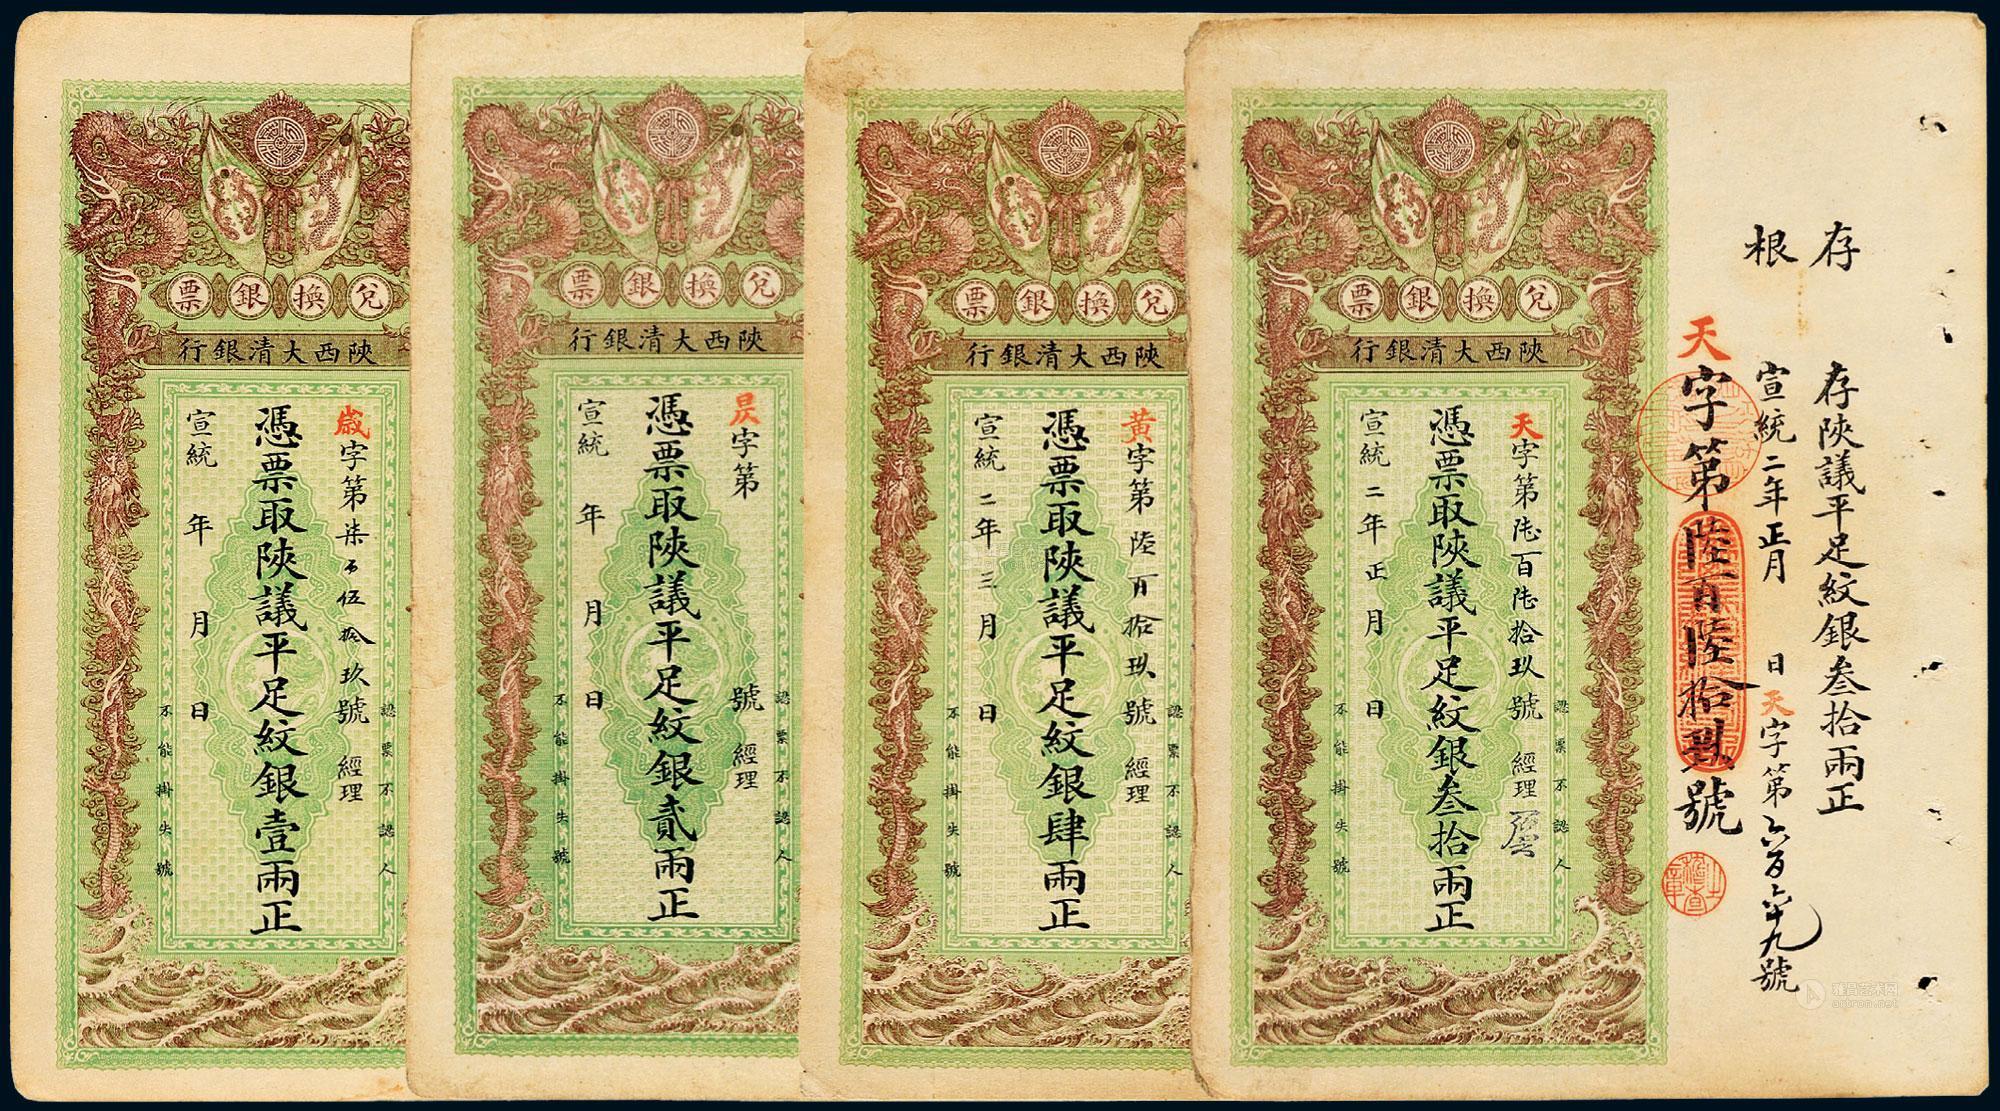 兌換銀票
陝西大清銀行
歲字第柒百伍拾玖號 經理
憑票取陝議平足紋銀壹兩正
宣統 年 月 日
認票不認人
不能掛失號
兌換銀票
陝西大清銀行
昃字第 號 經理
憑票取陝議平足紋銀貳兩正
宣統 年 月 日
認票不認人
不能掛失號
兌換銀票
陝西大清銀行
黃字第陸百拾玖號 經理
憑票取陝議平足紋銀肆兩正
宣統二年三月 日
認票不認人
不能掛失號
兌換銀票
陝西大清銀行
天字第陆百陆拾玖號 經理
憑票取陝議平足紋銀叁拾兩正
宣統二年正月 日
認票不認人
不能掛失號
存根
存陝議平足紋銀叁拾兩正
宣統二年正月 日天字第六百六十九號
天字第陸百陸拾玖號
雅昌艺术网
artron.net